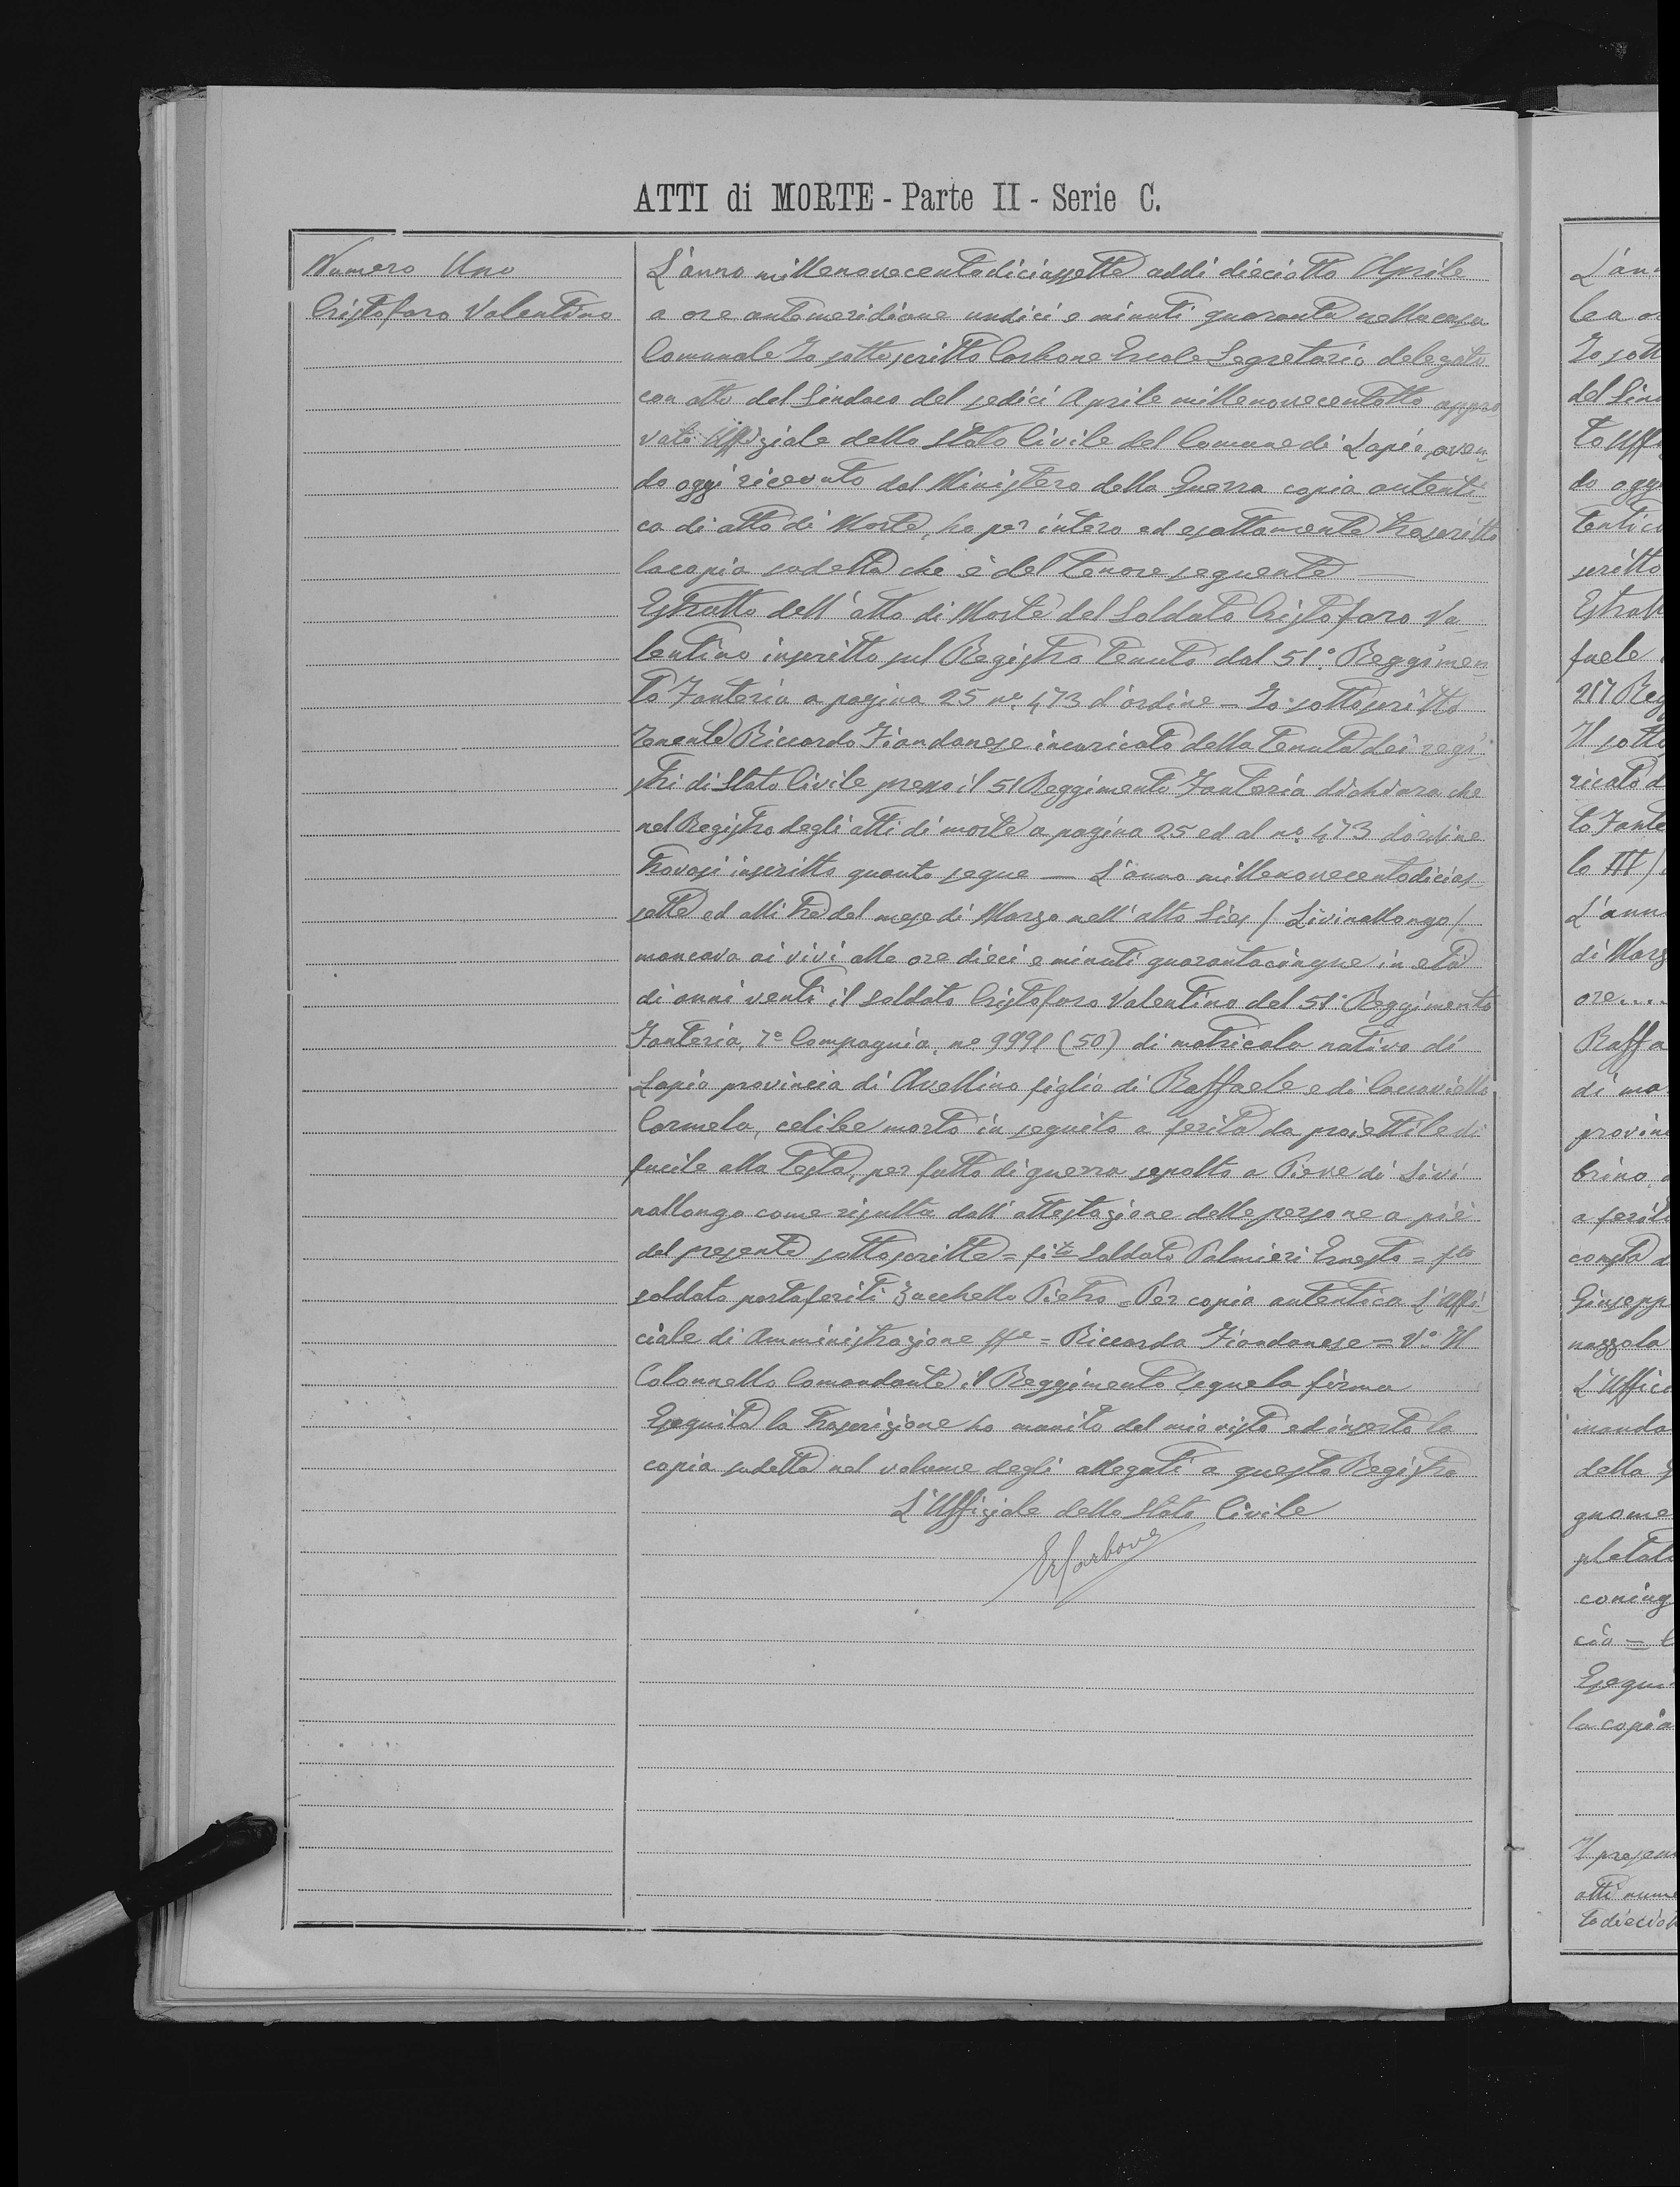 ATTI di MORTE - Parte II - Serie C.
Numero Uno
Cristofaro Valentino
L'anno millenovecentodiciassette addì dieciotto Aprile
a ore antemeridiane undici e minuti quaranta nella casa
Comunale Io sottoscritto Carbone Ercole Segretario delegato
con atto del Sindaco del sedici Aprile millenovecentotto appro
vato Uffiziale dello Stato Civile del Comune di Lapio, aven
do oggi ricevuto dal Ministero della Guerra copia autenti
ca di atto di Morte, ho per intero ed esattamente trascritto
la copia sudetta che è del tenore seguente —
Estratto dell'atto di Morte del Soldato Cristofaro Va
lentino inscritto sul Registro tenuto dal 51° Reggimen
to Fanteria a pagina 25 n° 473 d'ordine - Io sottoscritto
Tenente Riccardo Fiandanese incaricato della tenuta dei regi
stri di Stato Civile presso il 51 Reggimento Fanteria dichiara che
nel Registro degli atti di morte a pagina 25 ed al n° 473 d'ordine
trovasi inscritto quanto segue — L'anno millenovecentodicias
sette ed alli tre del mese di Marzo nell'alto Sies / Livinallongo /
mancava ai vivi alle ore dieci e minuti quarantacinque in età
di anni venti il soldato Cristofaro Valentino del 51° Reggimento
Fanteria, 7a Compagnia, n° 9991 (50) di matricola nativo di
Lapio provincia di Avellino figlio di Raffaele e di Caccaviello
Carmela, celibe morto in seguito a ferita da proiettile di
fucile alla testa, per fatto di guerra sepolto a Pieve di Livi
nallongo come risulta dall'attestazione delle persone a piè
del presente sottoscritte = f.to Soldato Palmieri Ernesto = f.to
soldato portaferiti Zacchello Pietro = Per copia autentica L'Uffi
ciale di Amministrazione ff.e = Riccardo Fiandanese = V° Il
Colonnello Comandante il Reggimento Segue la firma
Eseguita la trascrizione ho munito del mio visto ed inserto la
copia sudetta nel volume degli allegati a questo Registro
L'Uffiziale dello Stato Civile
Er Carbone
L'an
le a or
Io sott
del Sin
to Uff
do ogg
tentic
scritto
Estratt
faele
217 Reg
Il sotto
ricato d
to Fante
lo III /
L'ann
di Marz
ore....
Raffa
di ma
provinc
brino, a
a ferit
consta d
Giusepp
nazzola
L'Uffici
manda
della
gnome
pletat
coniug
cio —
Esegui
la copia
Il presen
atti nume
todieciot